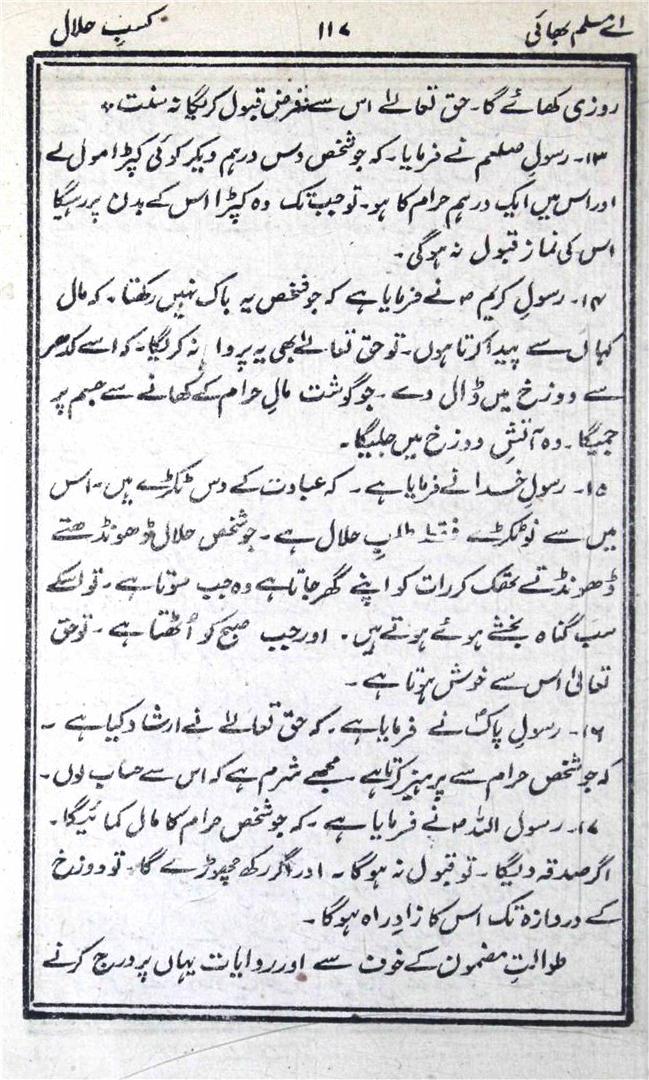 اے مسلم بھائی ۱۱۷ کسبِ حلال
روزی کھائے گا۔ حق تعالےٰ اس سے نہ فرض قبول کریگا نہ سنت۔
۱۳۔ رسولِ صلعم نے فرمایا۔ کہ جو شخص دس درہم دیکر کوئی کپڑا مول لے
اور اس میں ایک درہم حرام کا ہو۔ تو جب تک وہ کپڑا اس کے بدن پر رہیگا
اس کی نماز قبول نہ ہوگی۔
۱۴۔ رسولِ کریم ؐ نے فرمایا ہے کہ جو شخص یہ باک نہیں رکھتا۔ کہ مال
کہاں سے پیدا کرتا ہوں۔ تو حق تعالےٰ بھی یہ پروا نہ کریگا۔ کہ اسے کدھر
سے دوزخ میں ڈال دے۔ جو گوشت مالِ حرام کے کھانے سے جسم پر
جمیگا۔ وہ آتشِ دوزخ میں جلیگا۔
۱۵۔ رسولِ خدا نے فرمایا ہے۔ کہ عبادت کے دس ٹکڑے ہیں۔ اس
میں سے نو ٹکڑے فقط طلبِ حلال ہے۔ جو شخص حلال ڈھونڈھتے
ڈھونڈتے تھک کر رات کو اپنے گھر جاتا ہے وہ جب سوتا ہے۔ تو اسکے
سب گناہ بخشے ہوئے ہوتے ہیں۔ اور جب صبح کو اُٹھتا ہے۔ تو حق
تعالیٰ اس سے خوش ہوتا ہے۔
۱۶۔ رسولِ پاکؐ نے فرمایا ہے۔ کہ حق تعالےٰ نے ارشاد کیا ہے۔
کہ جو شخص حرام سے پرہیز کرتا ہے۔ مجھے شرم ہے کہ اس سے حساب لوں۔
۱۷۔ رسول اللہ ؐ نے فرمایا ہے۔ کہ جو شخص حرام کا مال کمائیگا۔
اگر صدقہ دیگا۔ تو قبول نہ ہوگا۔ اور اگر رکھ چھوڑے گا۔ تو دوزخ
کے دروازہ تک اس کا زادِ راہ ہوگا۔
طوالتِ مضمون کے خوف سے اور روایات یہاں پر درج کرنے